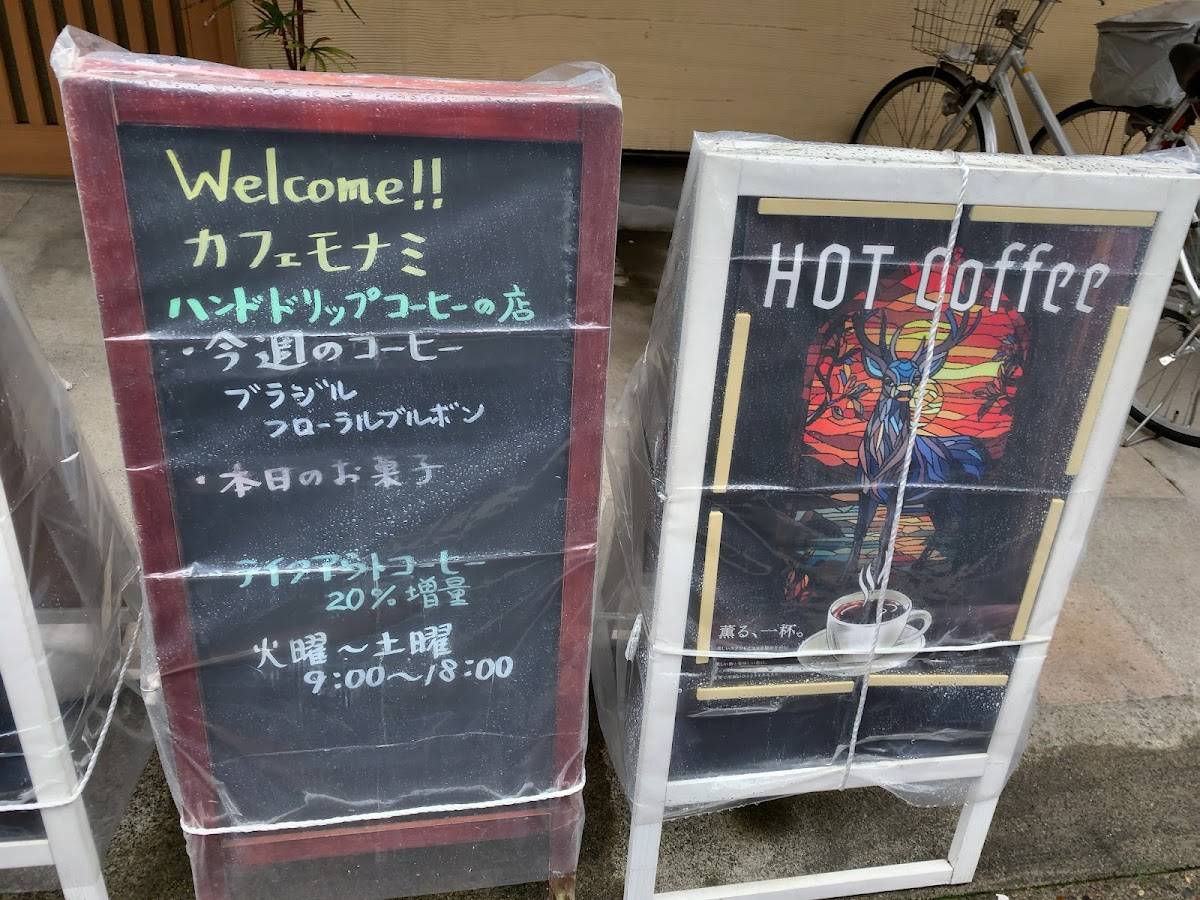 Welcome!!
カフェモナミ
ハンドドリップコーヒーの店
・今週のコーヒー
ブラジル
フローラルブルボン
・本日のお菓子
テイクアウトコーヒー
20%増量
火曜〜土曜
9:00〜18:00
HOT Coffee
薫る、一杯。